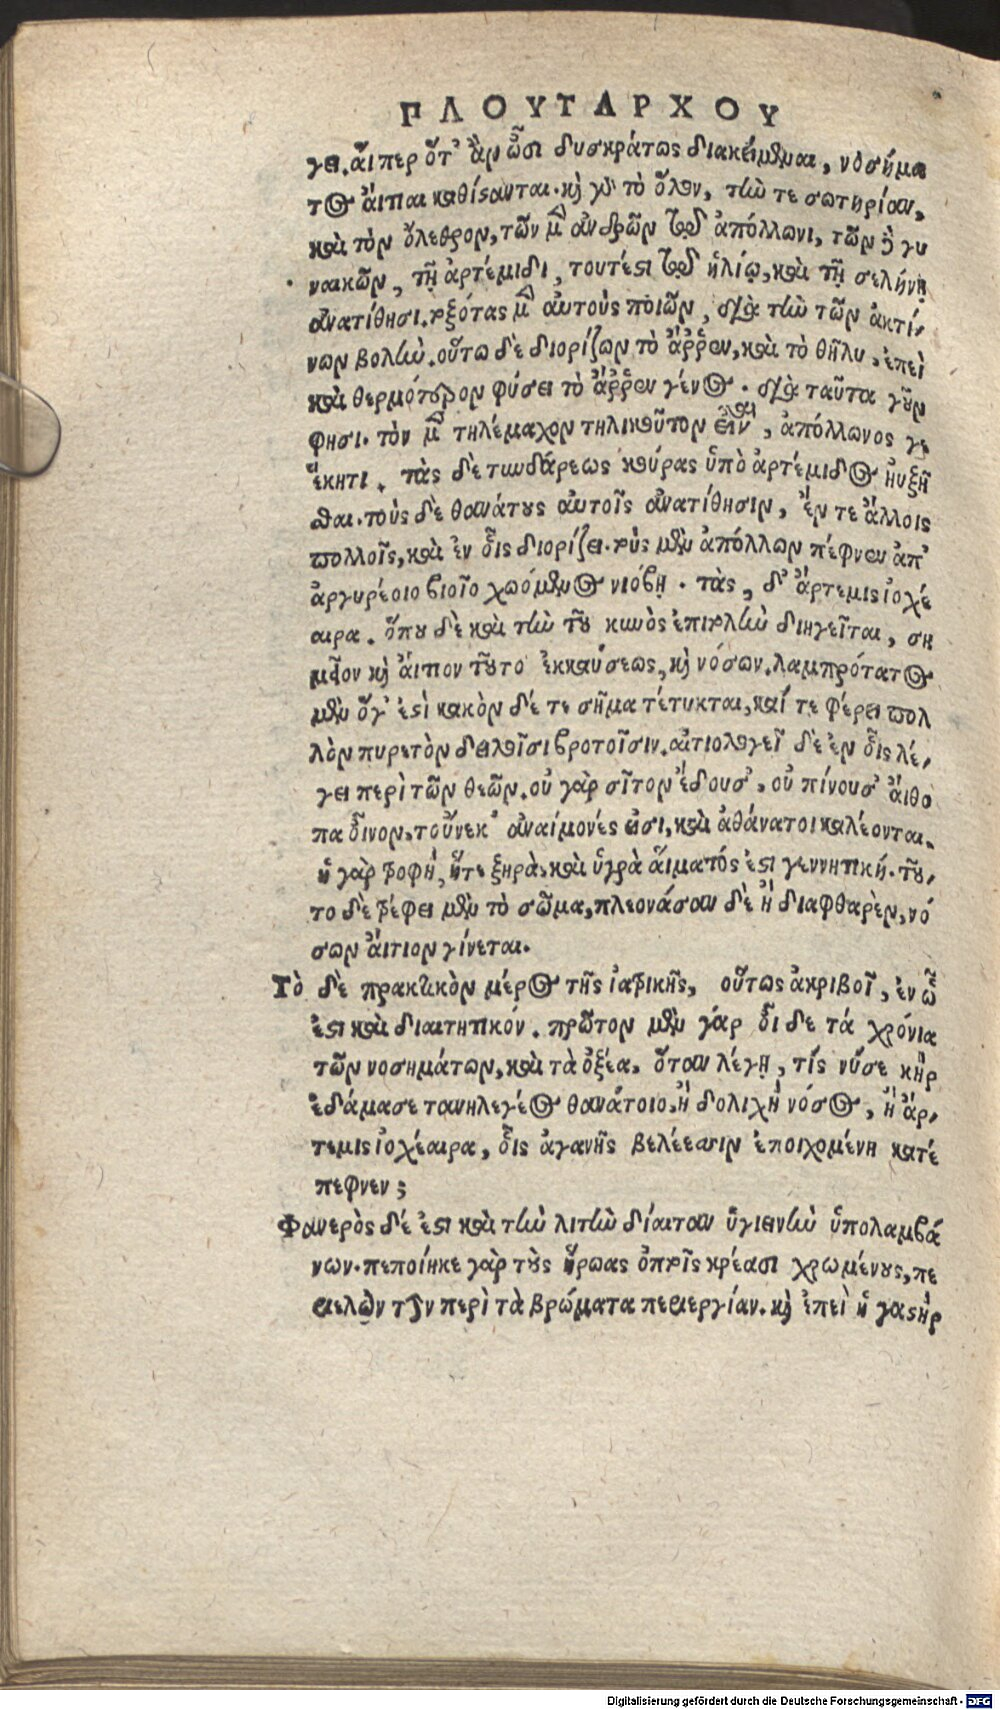 ΠΛΟΥΤΑΡΧΟΥ
γει. αἵπερ ὅτ' ἂν ὦσι δυσκράτως διακείμεναι, νοσήμα
τος αἴτιαι καθίστανται. καὶ γὰρ τὸ ὅλον, τὴν τε σωτηρίαν,
καὶ τὸν ὄλεθρον, τῶν μὲν ἀνδρῶν τῷ ἀπόλλωνι, τῶν δὲ γυ
ναικῶν, τῇ ἀρτέμιδι, τουτέστι τῷ ἡλίῳ, καὶ τῇ σελήνῃ
ἀνατίθησι. τοξότας μὲν αὐτοὺς ποιῶν, διὰ τὴν τῶν ἀκτί-
νων βολὴν. οὕτω δὲ διορίζων τὸ ἄῤῥεν, καὶ τὸ θῆλυ, ἐπεὶ
καὶ θερμότερον φύσει τὸ ἄῤῥεν γένος. διὰ ταῦτα γοῦν
φησι. τὸν μὲν τηλέμαχον τηλικοῦτον εἶναι, ἀπόλλωνος γε
ἕκητι. τὰς δὲ τυνδάρεως κούρας ὑπὸ ἀρτέμιδος ηὐξῆ
σθαι. τοὺς δὲ θανάτους αὐτοῖς ἀνατίθησιν, ἔν τε ἄλλοις
πολλοῖς, καὶ ἐν οἷς διορίζει. τοὺς μὲν ἀπόλλων πέφνεν ἀπ'
ἀργυρέοιο βιοῖο χωόμενος νιόβῃ. τὰς, δ' ἄρτεμις ἰοχέ
αιρα. ὅπου δὲ καὶ τὴν τοῦ κυνὸς ἐπιτολὴν διηγεῖται, ση
μεῖον καὶ αἴτιον τοῦτο ἐκκαύσεως, καὶ νόσων. λαμπρότατος
μὲν ὅγ' ἐστὶ κακὸν δέ τε σῆμα τέτυκται, καί τε φέρει πολ
λὸν πυρετὸν δειλοῖσι βροτοῖσιν. αἰτιολογεῖ δὲ ἐν οἷς λέ-
γει περὶ τῶν θεῶν. οὐ γὰρ σῖτον ἔδουσ', οὐ πίνουσ' αἴθο
πα οἶνον, τοὔνεκ' ἀναίμονές εἰσι, καὶ ἀθάνατοι καλέονται.
ἡ γὰρ τροφή, ἥτε ξηρὰ, καὶ ὑγρὰ αἵματός ἐστι γεννητική. τοῦ-
το δὲ τρέφει μὲν τὸ σῶμα, πλεονάσαν δὲ ἢ διαφθαρὲν, νό
σων αἴτιον γίνεται.
Τὸ δὲ πρακτικὸν μέρος τῆς ἰατρικῆς, οὕτως ἀκριβοῖ, ἐν ᾧ
ἐστι καὶ διαιτητικόν. πρῶτον μὲν γάρ οἶδε τά χρόνια
τῶν νοσημάτων, καὶ τὰ ὀξέα. ὅταν λέγῃ, τίς νύ σε κὴρ
ἐδάμασε τανηλεγέος θανάτοιο. ἢ δολιχὴ νόσος, ἢ ἄρ-
τεμις ἰοχέαιρα, οἷς ἀγανῆς βελέεσσιν ἐποιχομένη κατέ
πεφνεν;
Φανερὸς δέ ἐστι καὶ τὴν λιτὴν δίαιταν ὑγιεινὴν ὑπολαμβά
νων. πεποίηκε γὰρ τοὺς ἥρωας ὀπτοῖς κρέασι χρωμένους, πε
ριελὼν τὴν περὶ τὰ βρώματα περιεργίαν. καὶ ἐπεὶ ἡ γαστὴρ
Digitalisierung gefördert durch die Deutsche Forschungsgemeinschaft - DFG